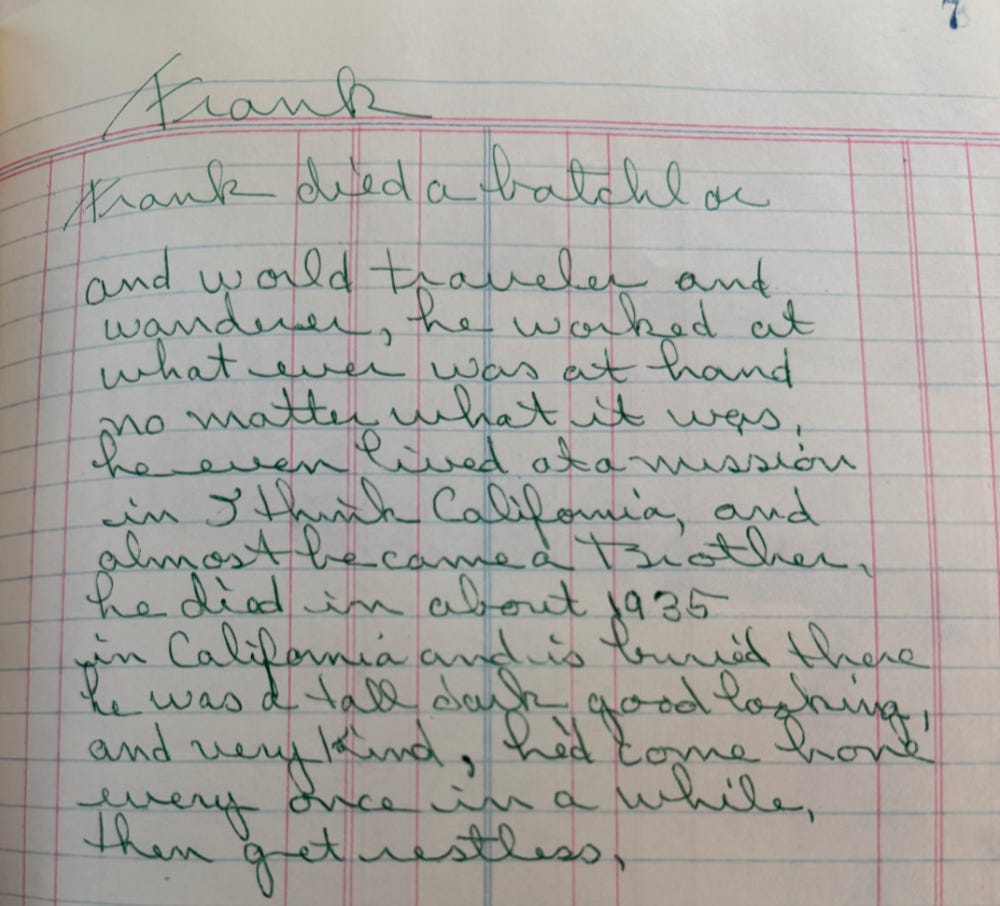 7
Frank
Frank died a batchlor
and world traveler and
wanderer, he worked at
what ever was at hand
no matter what it was,
he even lived at a mission
in I think California, and
almost became a Brother,
he died in about 1935
in California and is buried there
he was a tall dark good looking,
and very kind, he'd come home
every once in a while,
then get restless,